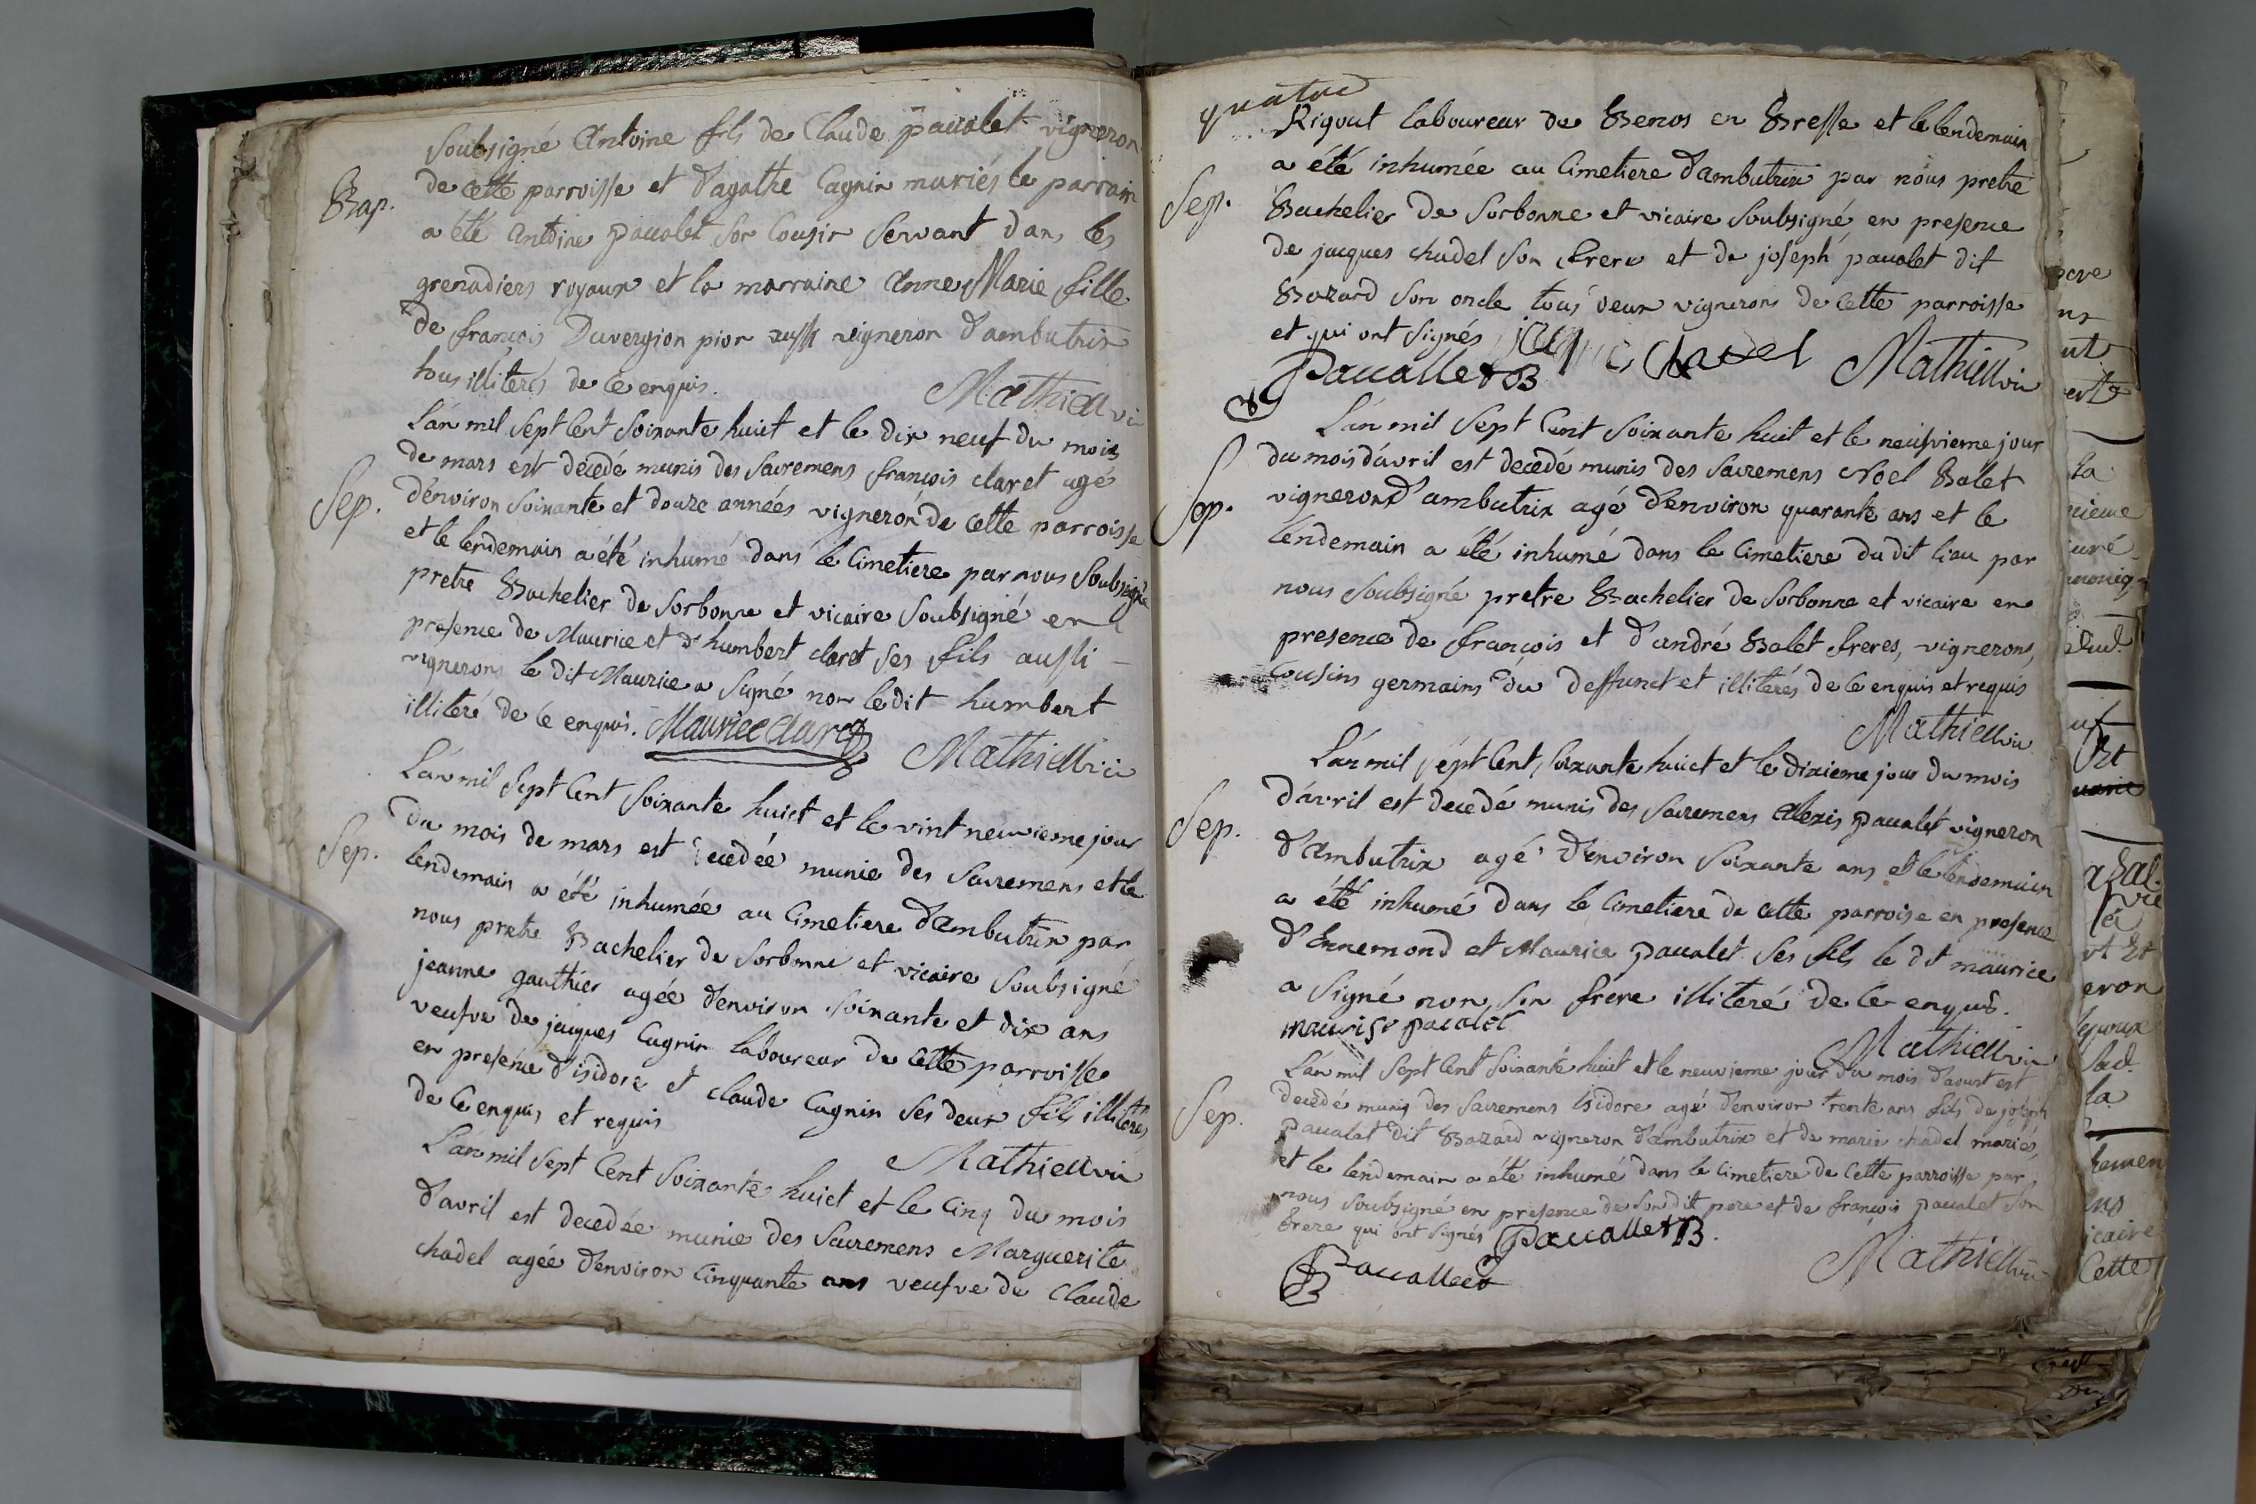 soubsigné Antoine fils de Claude pacalet vigneron
Bap.
de cette parroisse et d'agathe Cagnin mariés le parrain
a été Antoine pacalet son Cousin servant dans les
grenadiers royaux et la marraine Anne Marie fille
de françois Duvergion pion aussi vigneron d'ambutrix
tous illiterés de ce enquis.
Mathieu vic
L'an mil sept cent soixante huict et le dix neuf du mois
de mars est decedé munis des sacremens françois claret agé
Sep.
d'environ soixante et douze années vigneron de cette parroisse
et le lendemain a été inhumé dans le Cimetiere par nous soubsigné
pretre Bachelier de sorbonne et vicaire soubsigné en
presence de Maurice et d'humbert claret ses fils aussi -
vignerons le dit Maurice a signé non le dit humbert
illiteré de ce enquis. Maurice Claret
Mathieu vic
L'an mil sept cent soixante huict et le vint neuvieme jour
du mois de mars est decedée munie des sacremens et le
Sep.
lendemain a été inhumée au Cimetiere d'ambutrix par
nous pretre Bachelier de sorbonne et vicaire soubsigné
jeanne gauthier agée d'environ soixante et dix ans
veufve de jacques Cagnin laboureur de cette parroisse
en presence d'isidore et claude Cagnin ses deux fils illiterés
de ce enquis et requis
Mathieu vic
L'an mil sept cent soixante huict et le cinq du mois
d'avril est decedée munie des sacremens Marguerite
chadel agée d'environ cinquante ans veufve de Claude
quatre
Rigout laboureur de Benos en Bresse et le lendemain
a été inhumée au Cimetiere d'ambutrix par nous pretre
Sep.
Bachelier de sorbonne et vicaire soubsigné, en presence
de jacques chadel son frere et de joseph pacalet dit
Bazard son oncle tous deux vignerons de cette parroisse
et qui ont signés jacque Chadel
Paccallet B Mathieu vic
L'an mil sept cent soixante huit et le neufvieme jour
du mois d'avril est decedé munis des sacremens Noel Balet
Sep.
vigneron d'ambutrix agé d'environ quarante ans et le
lendemain a été inhumé dans le Cimetiere du dit lieu par
nous soubsigné pretre Bachelier de sorbonne et vicaire en
presence de françois et d'andré Balet freres, vignerons,
Cousins germains du deffunct et illiterés de ce enquis et requis
Mathieu vic
L'an mil sept cent soixante huict et le dixieme jour du mois
d'avril est decedé munis des sacremens Alexis pacalet vigneron
Sep.
d'ambutrix agé d'environ soixante ans et le lendemain
a été inhumé dans le Cimetiere de cette parroise en presence
d'Ennemond et Maurice pacalet ses fils le dit maurice
a signé non son frere illiteré de ce enquis.
maurise pacalet
Mathieu vic
L'an mil sept cent soixante huit et le neuvieme jour du mois d'aoust est
decedé munis des sacremens isidore agé d'environ trente ans fils de joseph
Sep.
pacalet dit Bazard vigneron d'ambutrix et de marie chadel mariés,
et le lendemain a été inhumé dans le Cimetiere de cette parroisse par
nous soubsigné en presence de son dit pere et de françois pacalet son
frere qui ont signés Paccallet B.
Paccallet
Mathieu vic